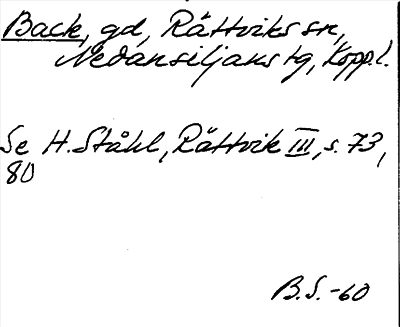 Back, gd, Rättviks sn,
Nedansiljans tg, Kopp.l.
Se H. Ståhl, Rättvik III, s. 73,
80
B.S.-60